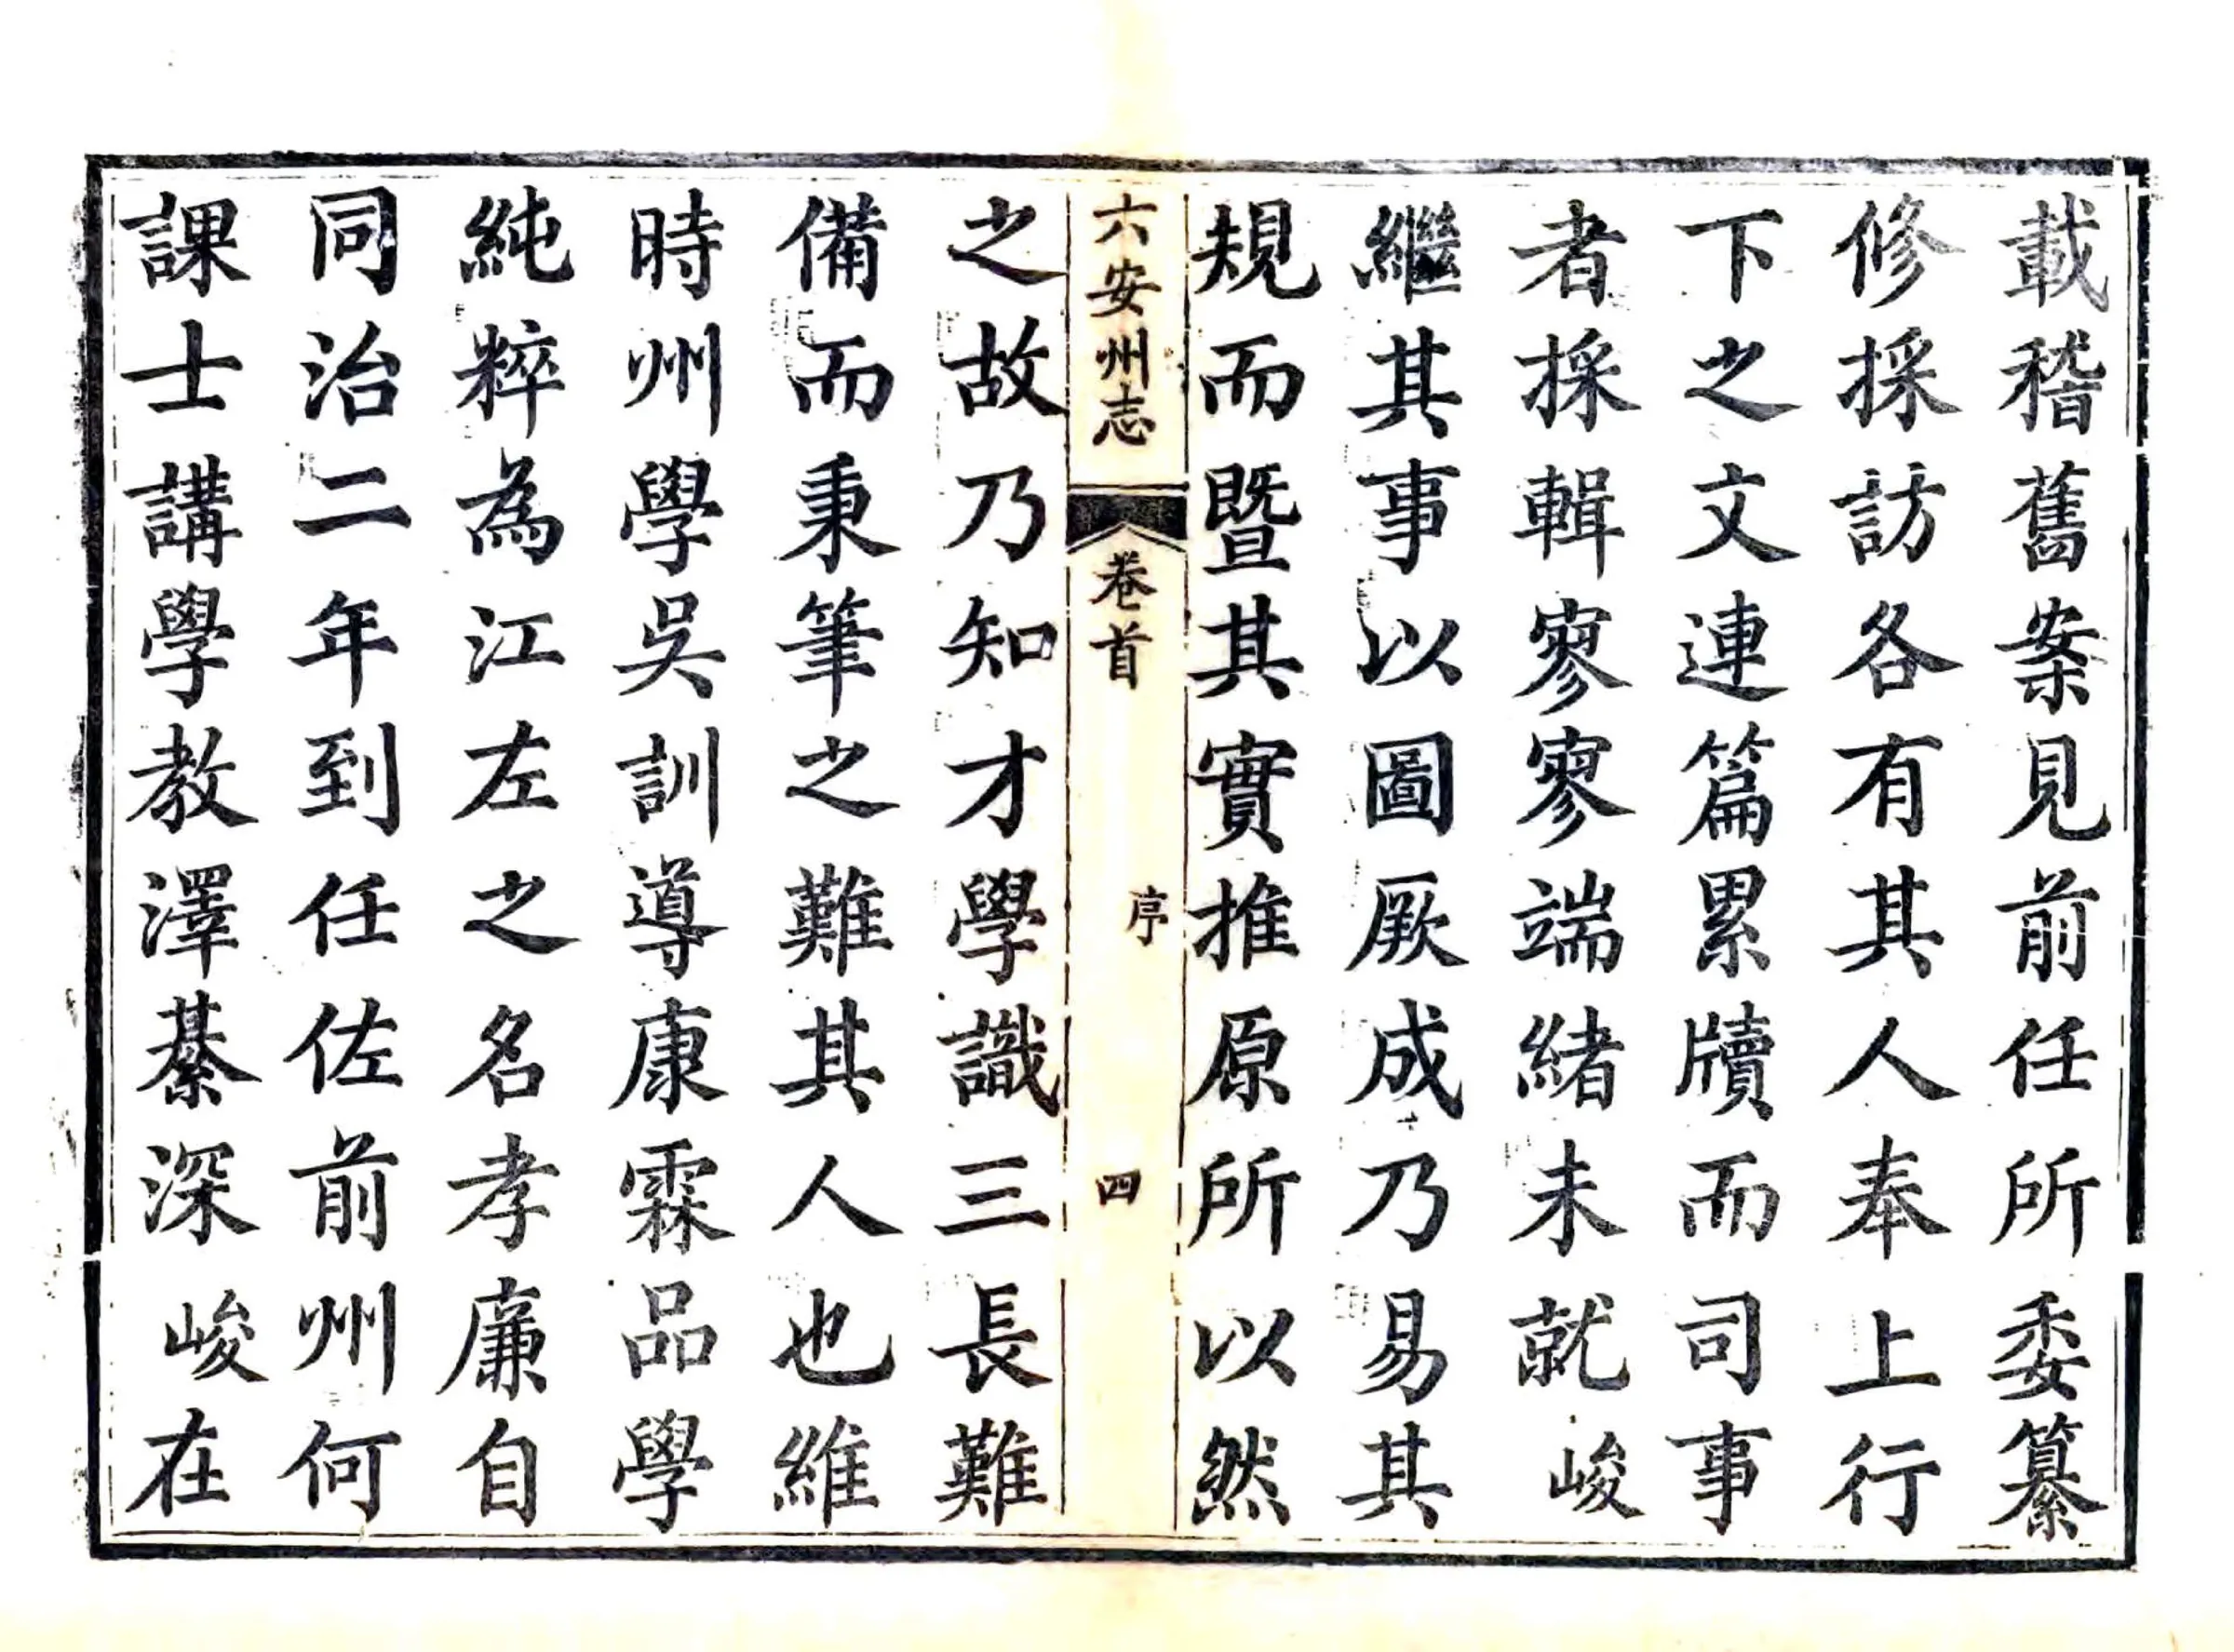 載稽舊案見前任所委纂
修採訪各有其人奉上行
下之文連篇累牘而司事
者採輯寥寥端緒未就峻
繼其事以圖厥成乃易其
規而暨其實推原所以然
六安州志
卷首
序
四
之故乃知才學識三長難
備而秉筆之難其人也維
時州學吳訓導康霖品學
純粹為江左之名孝廉自
同治二年到任佐前州何
課士講學教澤綦深峻在